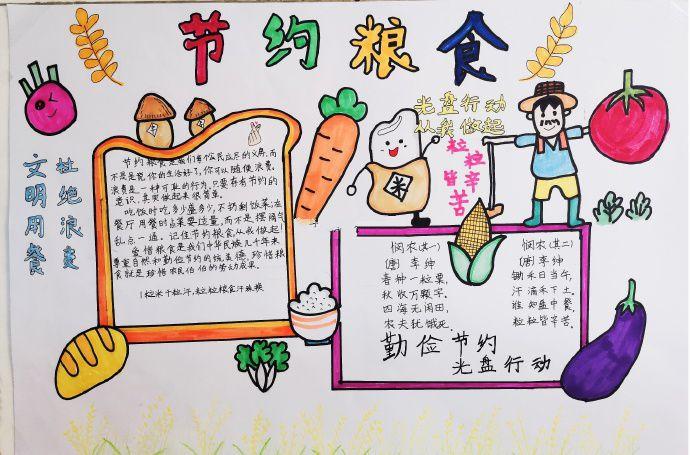 节约粮食
光盘行动
从我做起
粒粒
皆辛
苦
杜绝浪费
文明用餐
米
节约粮食是我们每个公民应尽的义务,而
不是是说你的生活好了,你可以随便浪费,
浪费是一种可耻的行为,只要存有节约的
意识,其实做起来很简单。
吃饭时吃,多少盛多少,不扔剩饭菜,在
餐厅用餐时点菜要适量,而不是摆阔气
乱点一通。记住节约粮食从我做起!
爱惜粮食是我们中华民族几十年来
尊重自然和勤俭节约的统美德,珍惜粮
食就是珍惜农民伯伯的劳动成果。
1粒米千粒汗,粒粒粮食汗珠换
悯农(其一)
(唐) 李绅
春种一粒粟,
秋收万颗字.
四海无闲田,
农夫犹饿死.
悯农(其二)
(唐)李绅
锄禾日当午,
汗滴禾下土,
谁知盘中餐,
粒粒皆辛苦.
勤俭节约
光盘行动